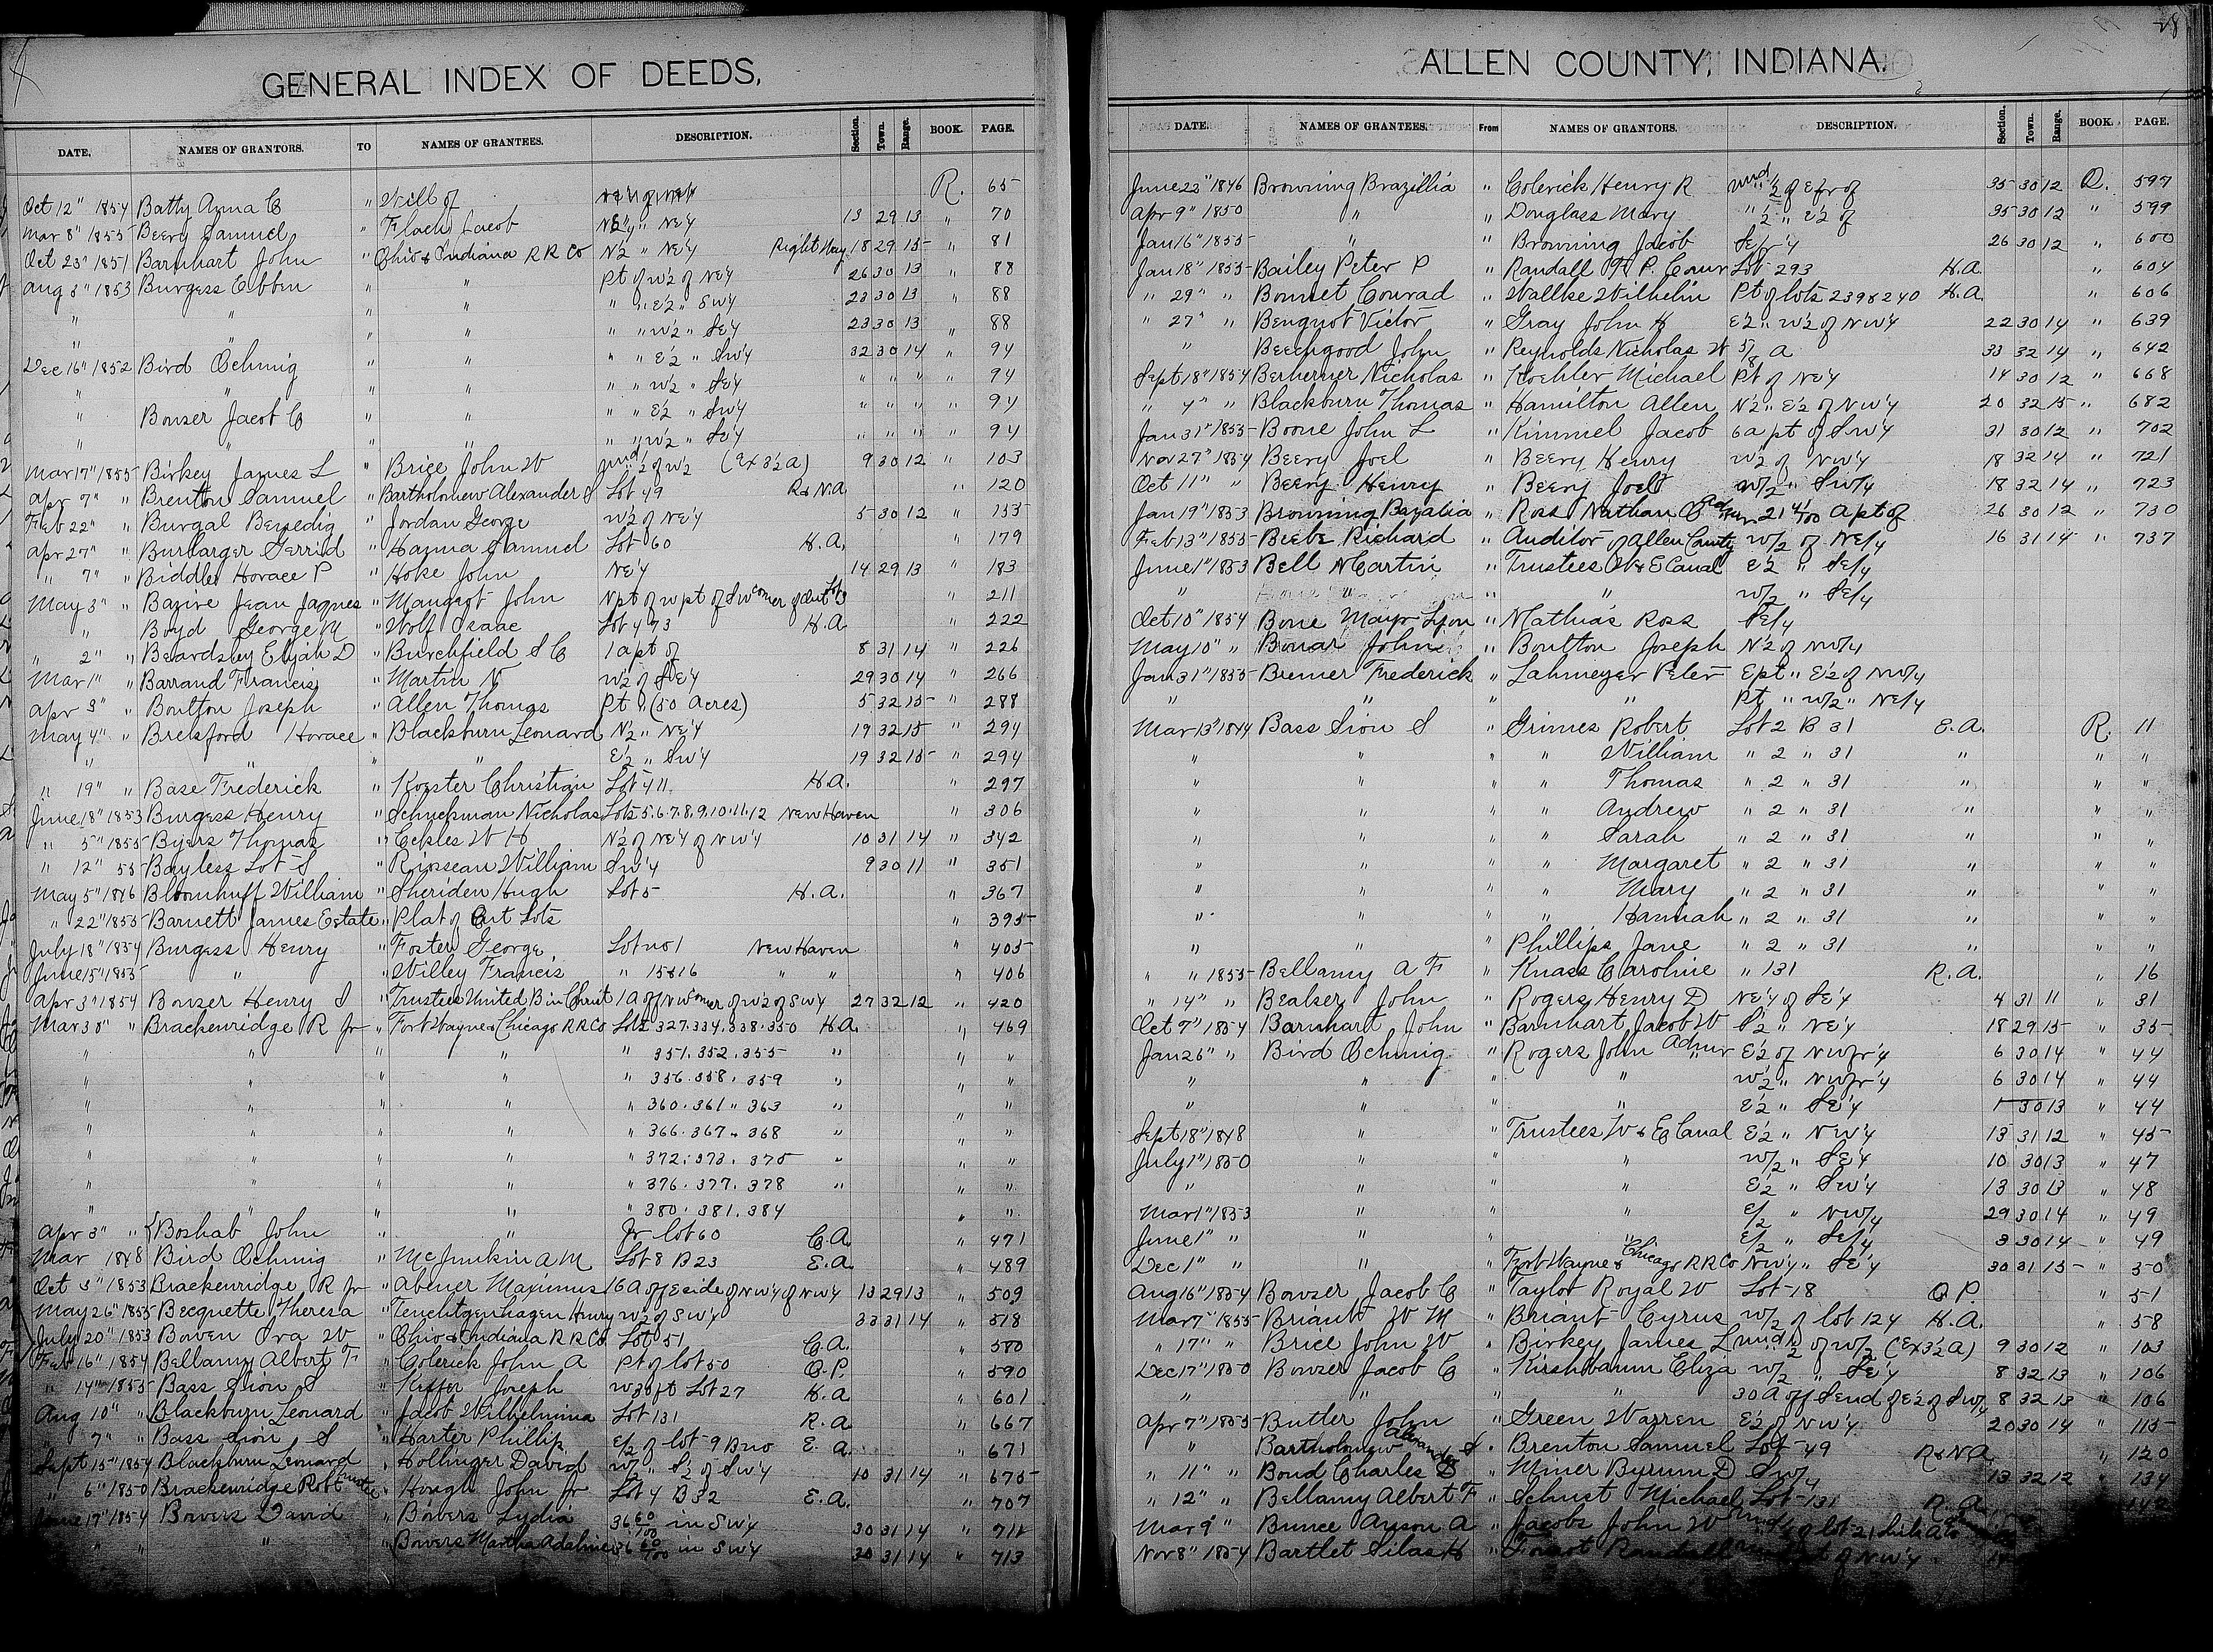 28
GENERAL INDEX OF DEEDS,
DATE. NAMES OF GRANTORS. TO NAMES OF GRANTEES. DESCRIPTION. Section. Town. Range. BOOK. PAGE.
Oct 12" 1854 Batty Anna C " Will of R. 65
Mar 8" 1855 Beery Samuel " Flach Jacob " NE'4 13 29 13 " 70
Oct 23" 1851 Barnhart John " Ohio & Indiana R R Co N'2 " NE'4 Right Way 18 29 15 " 81
Aug 3" 1853 Burgess Ebben " " Pt of W'2 of NE'4 26 30 13 " 88
" " " " " " E'2 " SW'4 23 30 13 88
" " " " " " W'2 " SE'4 23 30 13 " 88
Dec 16" 1852 Bird Ochmig " " " " E'2 " SW'4 32 30 14 " 94
" " " " " " W'2 " SE'4 " " " " 94
" Bowser Jacob C " " " " E'2 " SW'4 " " " " 94
" " " " " " W'2 " SE'4 " " " " 94
Mar 17" 1855 Birkey James L " Brice John W und'2 of W'2 (Ex 3'2 A) 9 30 12 " 103
Apr 7" " Brenton Samuel " Bartholomew Alexander S Lot 49 R & N.A. " 120
Feb 22" " Burgal Benedig " Jordan George W'2 of NE'4 5 30 12 " 155
Apr 27" " Burbarger Gerrid " Hanna Samuel Lot 60 H.A. " 179
" 7" " Biddle Horace P " Hoke John NE'4 14 29 13 " 183
May 3" " Bazire Jean Jaques " Maugrot John N pt of W pt of SW corner of Out Lot 3 " 211
" Boyd George M " Wolf Isaac Lot 473 H.A. " 222
" 2" " Beardsley Elijah D " Burchfield S C 1 a pt of 8 31 14 " 226
Mar 1" " Barrand Francis " Martin N W'2 of SE'4 29 30 14 " 266
Apr 3" " Boulton Joseph " Allen Thomas Pt " (50 Acres) 5 32 15 " 288
May 4" " Brelsford Horace " Blackburn Leonard N'2 " NE'4 19 32 15 " 294
" " " " E'2 " SW'4 19 32 15 " 294
" 19" " Base Frederick " Koester Christian Lot 411 H.A. " 297
June 18" 1853 Burgess Henry " Schuckman Nicholas Lots 5.6.7.8.9.10.11.12 New Haven " 306
" 5" 1855 Byers Thomas " Eckles W H N'2 of NE'4 of NW'4 10 31 14 " 342
" 12" 55 Bayless Lot S " William SW'4 9 30 11 " 351
May 5" 1846 Bloomhuff William " Sheriden Hugh Lot 5 H.A. " 367
" 22" 1855 Barnett James Estate " Plat of Out Lots " 395
July 18" 1854 Burgess Henry " Foster George Lot no 1 New Haven " 405
June 15" 1855 " " Willey Francis " 15&16 " " " 406
Apr 3" 1854 Bowser Henry S " Trustees United B in Christ 1 A off NW corner of W'2 of SW'4 27 32 12 " 420
Mar 30" " Brackenridge R Jr " Fort Wayne & Chicago RR Co Lots 327.334.338.350 H.A. " 469
" " " " " 351.352.355 " " "
" " " " " 356.358.359 " " "
" " " " " 360.361 " 363 " " "
" " " " " 366.367 " 368 " " "
" " " " " 372.373.375 " " "
" " " " " 376.377.378 " " "
" " " " " 380.381.384 " "
Apr 3" " Boshab John " " Fr lot 60 C.A. " 471
Mar 1848 Bird Ochmig " McJunkin A M Lot 8 B 23 E.A. " 489
Oct 3" 1853 Brackenridge R Jr " Abener Maximus 16 A off E side of NW'4 of NW'4 13 29 13 " 509
May 26" 1855 Becquette Theresa " Henry W'2 of SW'4 33 31 14 " 518
July 20" 1853 Bowen Ira W " Ohio & Indiana R R Co Lot 51 C.A. " 580
Feb 16" 1854 Bellamy Albert F " Colerick John A Pt of lot 50 O.P. " 590
" 14" 1855 Bass Sion S " Kiffer Joseph W 30 ft Lot 27 H.A. " 601
Aug 10" " Blackburn Leonard " Jacob Wilhelmina Lot 131 R.A. " 667
" 7" " Bass Sion S " Harter Phillip E/2 of lot 9 B no E.A. " 671
Sept 15" 1854 Blackburn Leonard " Hollinger David W/2 " S'2 of SW'4 10 31 14 " 675
" 6" 1850 Brackenridge Robt Trustee " Hough John Jr Lot 4 B 32 E.A. " 707
June 17" 1854 Bowers David " Bowers Lydia 36 60/100 in SW'4 30 31 14 " 711
" " " Bowers Martha Adaline 36 60/100 in SW'4 30 31 14 " 713
ALLEN COUNTY, INDIANA.
DATE. NAMES OF GRANTEES. From NAMES OF GRANTORS. DESCRIPTION. Section. Town. Range. BOOK. PAGE.
June 22" 1846 Browning Brazillia " Colerick Henry R und 1/2 of E fr of 35 30 12 Q. 597
Apr 9" 1850 " " Douglass Mary " 1/2 " E'2 of 35 30 12 " 599
Jan 16" 1855 " " Browning Jacob SE fr'4 26 30 12 " 600
Jan 18" 1855 Bailey Peter P " Randall F P. Comr Lot 293 H.A. " 604
" 29" " Bonnet Conrad " Wallke Wilhelm Pt of lots 239 & 240 H.A. " 606
" 27" " Benquot Victor " Gray John H E'2 " W'2 of NW'4 22 30 14 " 639
" Beechgood John " Reynolds Nicholas W 5/8 A 33 32 14 " 642
Sept 18" 1854 Berherner Nicholas " Koehler Michael Pt of NE'4 14 30 12 " 668
" 4" " Blackburn Thomas " Hamilton Allen N'2 " E'2 of NW'4 20 32 15 " 682
Jan 31" 1855 Boone John L " Kimmel Jacob 6 a pt of SW'4 31 30 12 " 702
Nov 27" 1854 Beery Joel " Beery Henry W'2 of NW'4 18 32 14 " 721
Oct 11" " Beery Henry " Beery Joel W/2 " SW/4 18 32 14 " 723
Jan 19" 1853 Browning Bazalia " Ross Nathan 21 4/100 a pt of 26 30 12 " 730
Feb 13" 1855 Beebe Richard " Auditor of Allen County W/2 of NE/4 16 31 14 " 737
June 1" 1853 Bell Martin " Trustees W & E Canal E'2 " SE/4
" " " W/2 " SE/4
Oct 10" 1854 Bone Mayr Lyon " Mathias Ross SE/4
May 10" " Bonar John " Boulton Joseph N'2 of NW/4
Jan 31" 1855 Bremer Frederick " Lahmeyer Peter E pt " E'2 of NW/4
" " " " Pt " W/2 " NE/4
Mar 13" 1844 Bass Sion S " Grimes Robert Lot 2 B 31 E.A. R. 11
" " " " William " 2 " 31 " " "
" " " " Thomas " 2 " 31 " " "
" " " " Andrew " 2 " 31 " " "
" " " " Sarah " 2 " 31 " " "
" " " " Margaret " 2 " 31 " " "
" " " " Mary " 2 " 31 " " "
" " " " Hannah " 2 " 31 " " "
" " " Phillips Jane " 2 " 31 " " "
" " 1855 Bellamy A F " Knass Caroline " 131 R.A. " 16
" 14" " Bealser John " Rogers Henry D NE'4 of SE'4 4 31 11 " 31
Oct 7" 1854 Barnhart John " Barnhart Jacob W S'2 " NE'4 18 29 15 " 35
Jan 26" " Bird Ochmig " Rogers John Admr E'2 of NW fr'4 6 30 14 " 44
" " " " W'2 " NW fr'4 6 30 14 " 44
" " " " E'2 " SE'4 1 30 13 " 44
Sept 18" 1848 " " Trustees W & E Canal E'2 " NW'4 13 31 12 " 45
July 1" 1850 " " " W/2 " SE'4 10 30 13 " 47
" " " " E'2 " SW'4 13 30 13 " 48
Mar 1" 1853 " " " E/2 " NW/4 29 30 14 " 49
June 1" " " " " E/2 " SE/4 3 30 14 " 49
Dec 1" " " " Fort Wayne & Chicago R R Co NW'4 " SE'4 30 31 15 " 50
Aug 16" 1854 Bowser Jacob C " Taylor Royal W Lot 18 O.P. " 51
Mar 7" 1855 Briant W M " Briant Cyrus W/2 of lot 124 H.A. " 58
" 17" " Brice John W " Birkey James L und 1/2 of W/2 (Ex 3'2 A) 9 30 12 " 103
Dec 17" 1850 Bowser Jacob C " Kirshbaum Eliza W/2 " SE'4 8 32 13 " 106
" " " " 30 A off S end of E'2 of SW/4 8 32 13 " 106
Apr 7" 1855 Butler John " Green Warren E'2 of NW'4 20 30 14 " 115
" Bartholomew Alexander S " Brenton Samuel Lot 49 R & N.A. " 120
" 11" " Bond Charles D " Miner Byrum D SW/4 13 32 12 " 134
" 12" " Bellamy Albert F " Schust Michael Lot 131 R.A. 142
Mar 9" " Bunce Anson A " Jacobs John W
Nov 8" 1854 Bartlet Silas H " Randall of NW'4